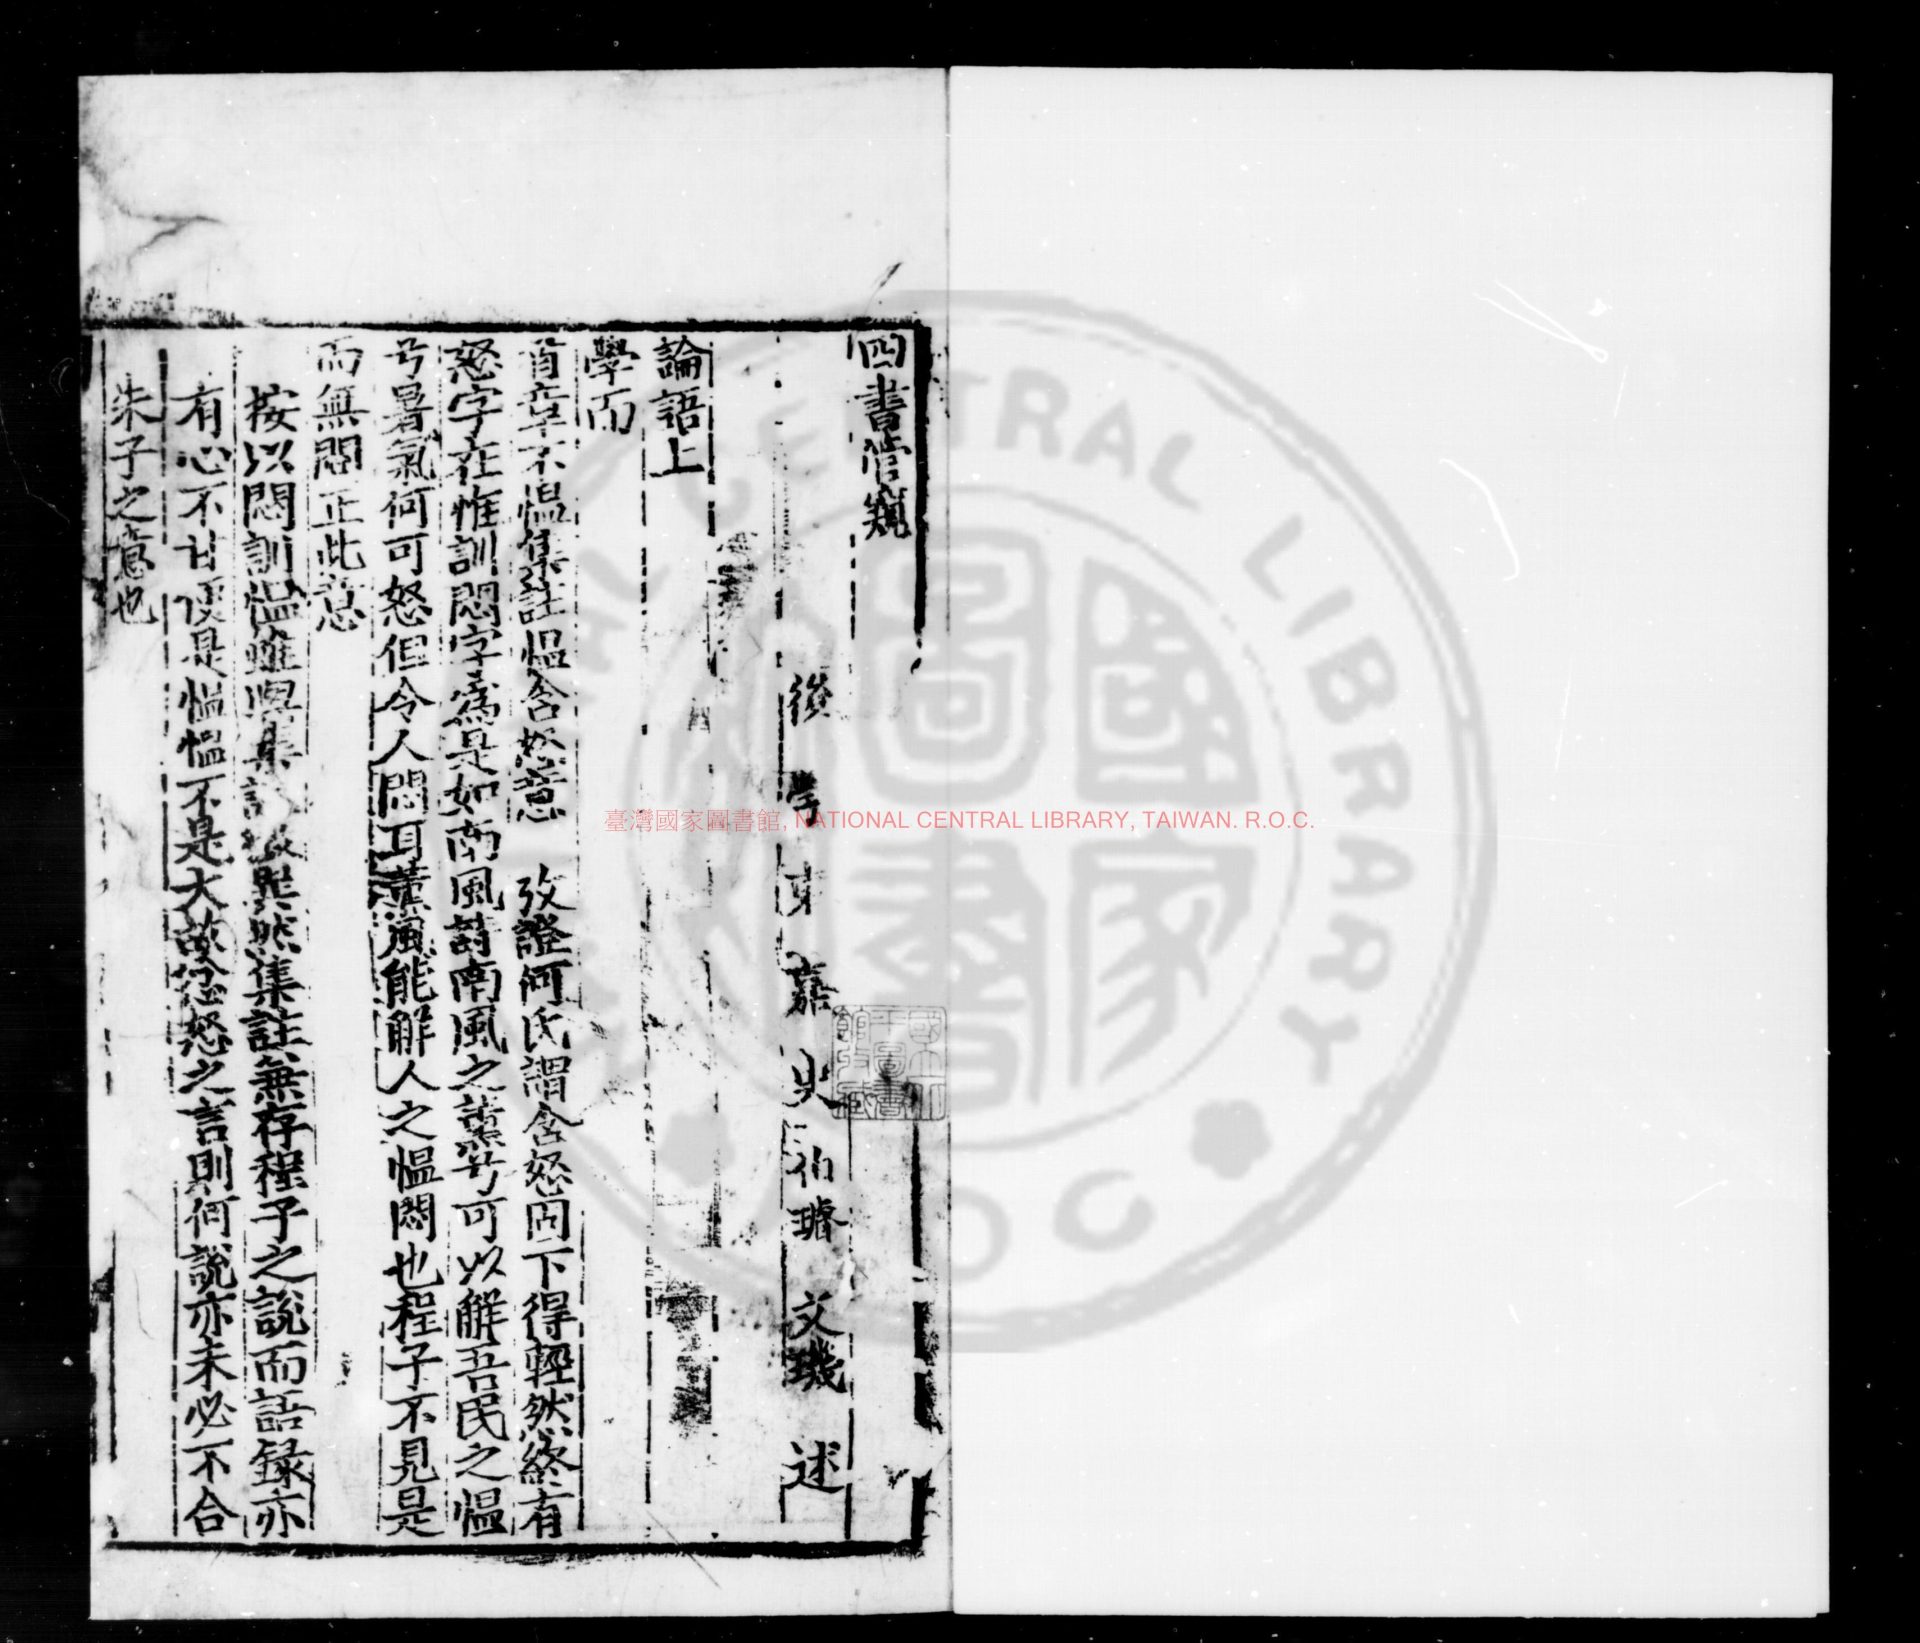 四書管窺
後學東嘉史伯璿文璣述
論語上
學而
首章不慍集註慍含怒意　攷證何氏謂含怒固下得輕然終有
怒字在惟訓悶字爲是如南風詩南風之薰兮可以解吾民之慍
兮暑氣何可怒但令人悶耳薰風能解人之慍悶也程子不見是
而無悶正此意
按以悶訓慍雖與集註異然集註兼存程子之說而語録亦
有心不甘便是慍慍不是大故忿怒之言則何說亦未必不合
朱子之意也
臺灣國家圖書館, NATIONAL CENTRAL LIBRARY, TAIWAN. R.O.C.